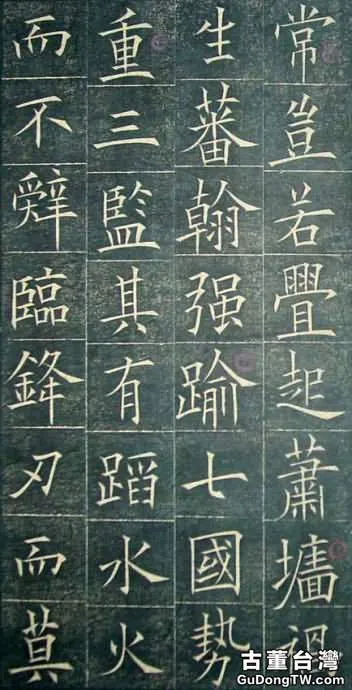 常豈若舋起蕭墻禍
生蕃翰强踰七國勢
重三監其有蹈水火
而不辤臨鋒刃而莫
古董台灣
GuDongTW.com